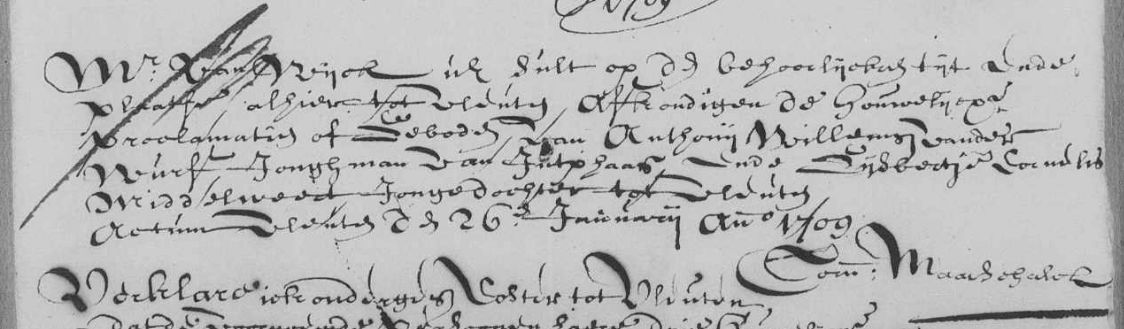 1709
Mr. Rijck uE sult op den behoorlijcken tijt ende
plaatse alhier tot Vleuten Affkondigen de Houwelijcxe
Proclamatien of Geboden van Anthonij Willemsz vander
Wurf Jonghman van Jutphaas, ende Eijbertje Cornelis
Middelweert Jongedochter tot Vleuten
Actum Vleuten den 26e Januarij Ano 1709
Com: Maarschalck
Verklare ick ondergesz Coster tot Vleuten